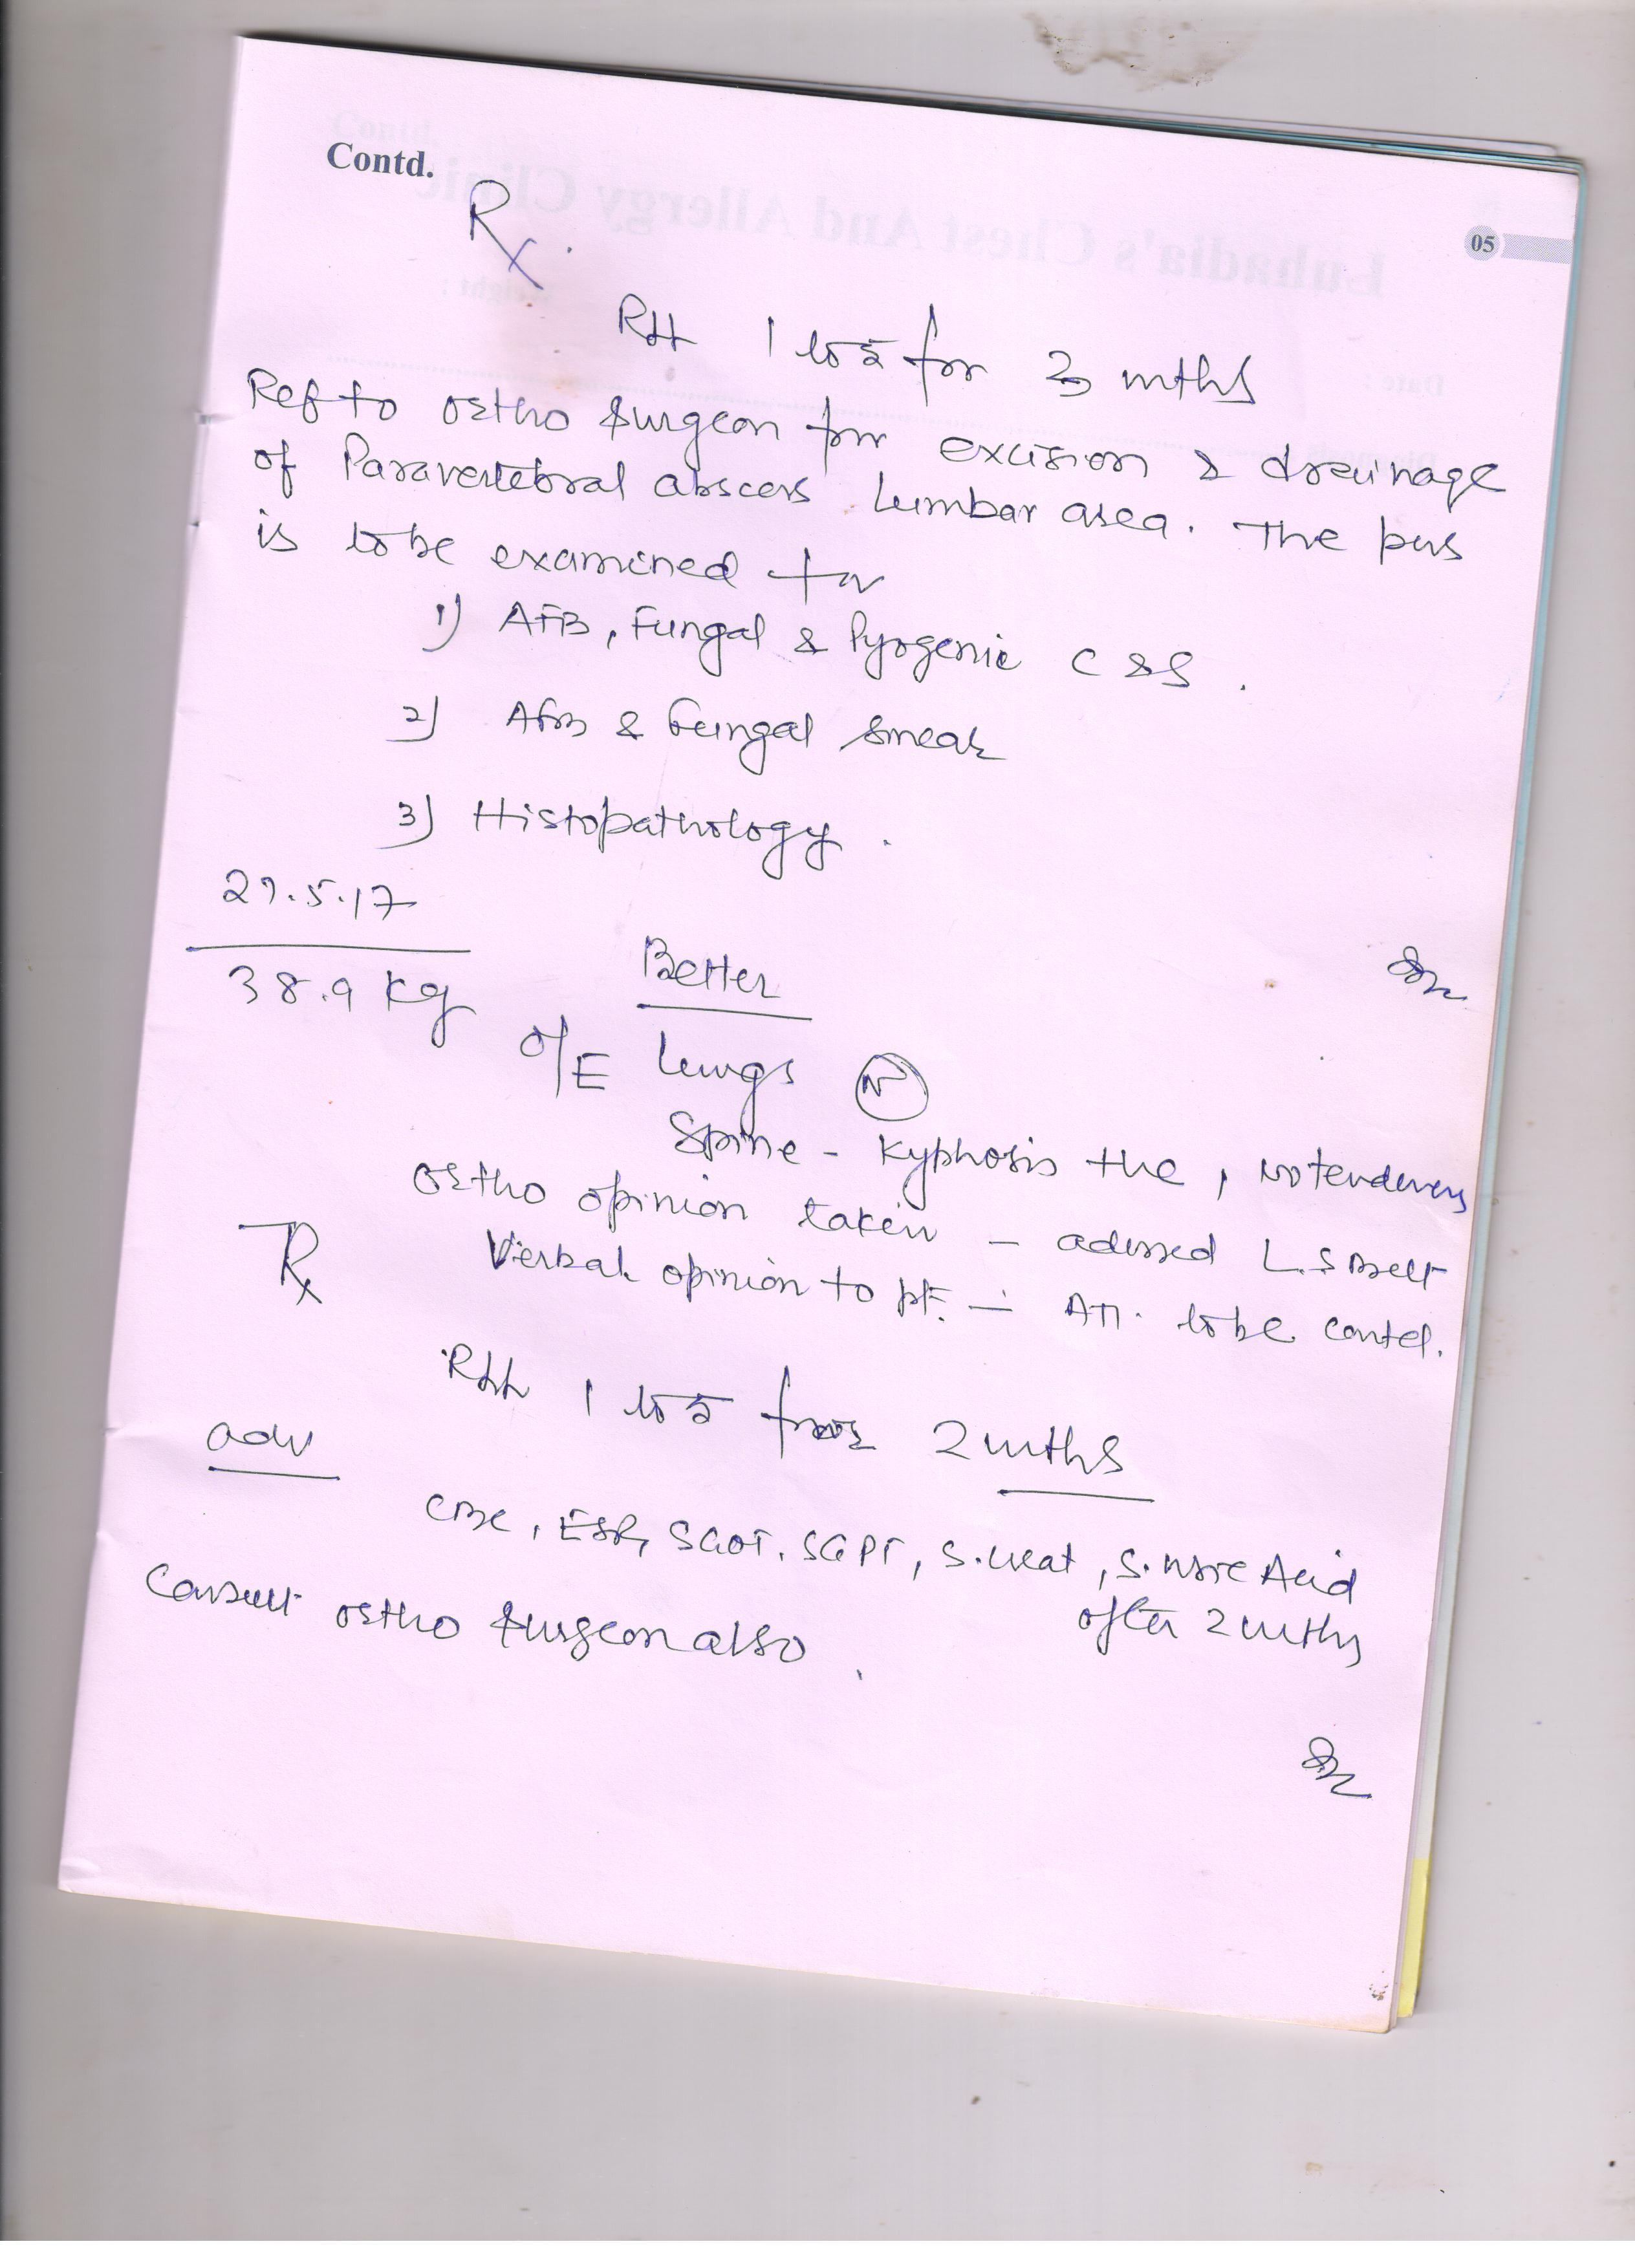 Contd.
05
Rx.
RH 1 to 5 for 3 mths
Ref to ortho surgeon for excision & drainage
of Paravertebral abscess Lumbar area. The pus
is to be examined for
1) AFB, Fungal & Pyogenic C & S.
2) AFB & Fungal smear
3) Histopathology.
29.5.17
38.9 kg
Better
O/E Lungs N
Spine - Kyphosis +ve, No tenderness
Ortho opinion taken - advised L.S Belt
Rx
Verbal opinion to pt. - ATT. to be contd.
RH 1 to 5 for 2 mths
adv
CBC, ESR, SGOT, SGPT, S. Creat, S. Uric Acid
after 2 mths
Consult ortho surgeon also.